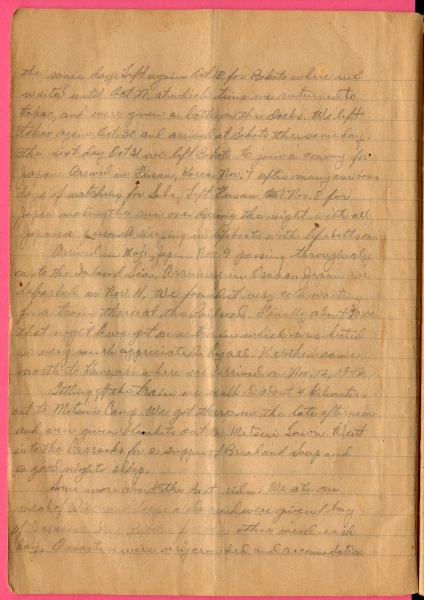 the same day. Left again Oct 18 for Bokoto where we
waited until Oct 27 at which time we returned to
Takao, and were given a bath on the docks. We left
Takao again Oct 30 and arrived at Bokoto the same day.
The next day Oct 31 we left Bokoto to join a convoy for
Japan. Arrived in Fusan, Korea Nov. 7 after many anxious
days of watching for Subs. Left Fusan Nov. 8 for
Japan making the run over during the night with all
Japanese personnel sleeping in lifeboats with life belts on.
Arrived in Moji, Japan Nov. 9 passing through
on to the Inland Sea. Arriving in Osaka Japan we
departed on Nov. 11. We found it very cold waiting
for a train there at the railroad. Finally about
that night we got on a train which was heated
so very much appreciated by all. We then came
north to Kawasaki where we arrived on Nov. 12, 1942.
Getting off the train we walked about 4 kilometers
out to Mitsui Camp. We got there in the late afternoon
and were given blankets out on Mitsui Lawn. Went
into the Barracks for a supper of Bread and Soup and
a good nights sleep.
Some more about the Boat ride. We ate one
meal of Rice and Soup a day and were given 1 bag
of Japanese for the other meal each
day. Quarters were very crowded and accomodation